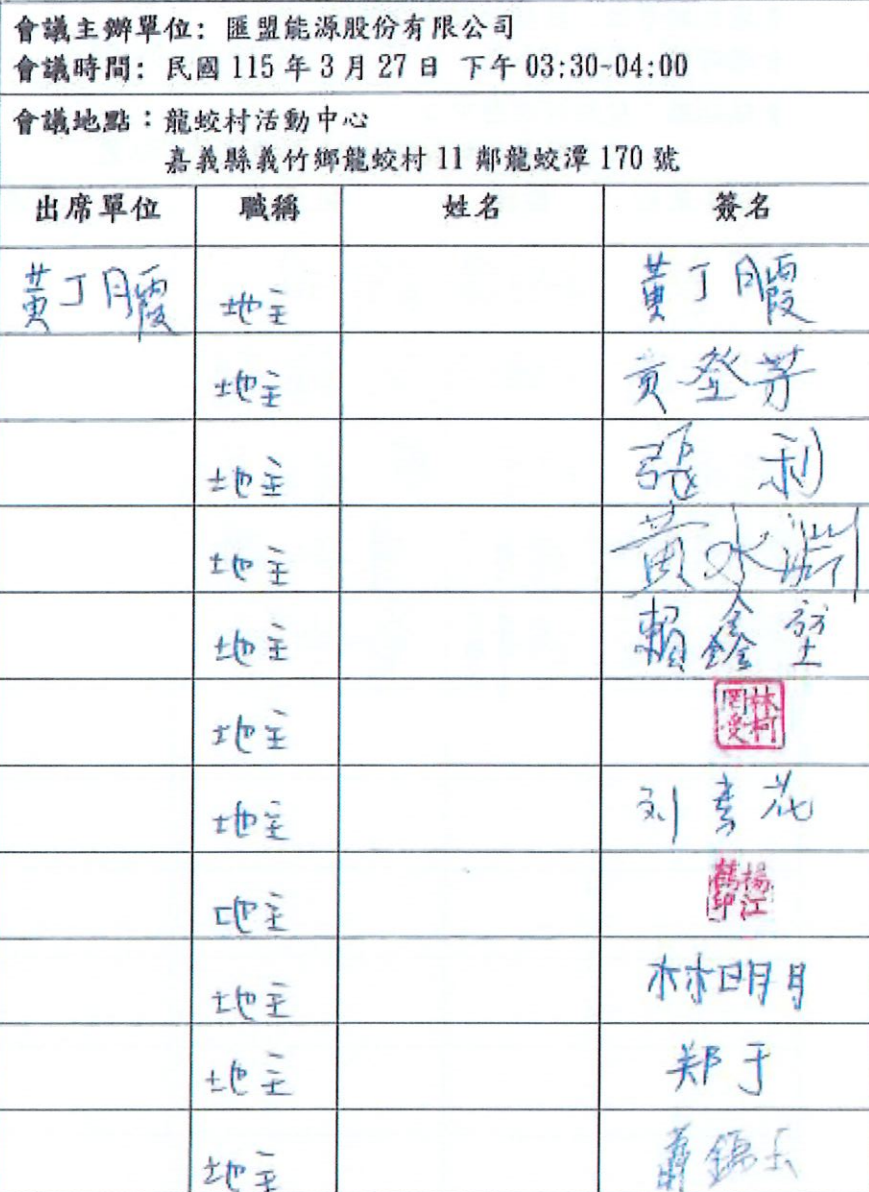 會議主辦單位: 匯盟能源股份有限公司
會議時間: 民國 115 年 3 月 27 日 下午 03:30~04:00
會議地點：龍蛟村活動中心
嘉義縣義竹鄉龍蛟村 11 鄰龍蛟潭 170 號
出席單位 職稱 姓名 簽名
黃丁月霞 地主 黃丁月霞
地主 黃登芽
地主 張利
地主 黃水淵
地主 賴鑫
地主 林柯罔受
地主 刘素花
地主 楊江鶴印
地主 林明月
地主 郑于
地主 蕭錦玉